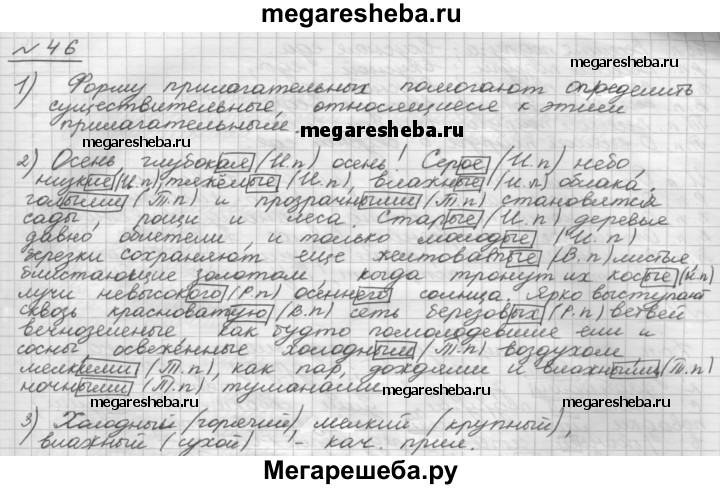 megaresheba.ru
№ 46
megaresheba.ru
1) Форму прилагательных помогают определить
существительные, относящиеся к этим
прилагательным.
megaresheba.ru
megaresheba.ru
2) Осень глубокая (И.п) осень! Серое (И.п) небо,
низкие (И.п), тяжёлые (И.п), влажные (И.п) облака,
голыми (Т.п) и прозрачными (Т.п) становятся
сады, рощи и леса. Старые (И.п) деревья
давно облетели, и только молодые (И.п)
березки сохраняют еще желтоватые (В.п) листья
блистающие золотом, когда тронут их косые (И.п)
лучи невысокого (Р.п) осеннего солнца. Ярко выступают
сквозь красноватую (В.п) сеть березовых (Р.п) ветвей
вечнозеленые как будто помолодевшие ели и
сосны освеженные холодным (Т.п) воздухом
мелкими (Т.п), как пар, дождями и влажными (Т.п)
ночными (Т.п) туманами.
megaresheba.ru
megaresheba.ru
3) Холодный (горячий), мелкий (крупный),
влажный (сухой) - кач. прил.
Мегарешеба.ру